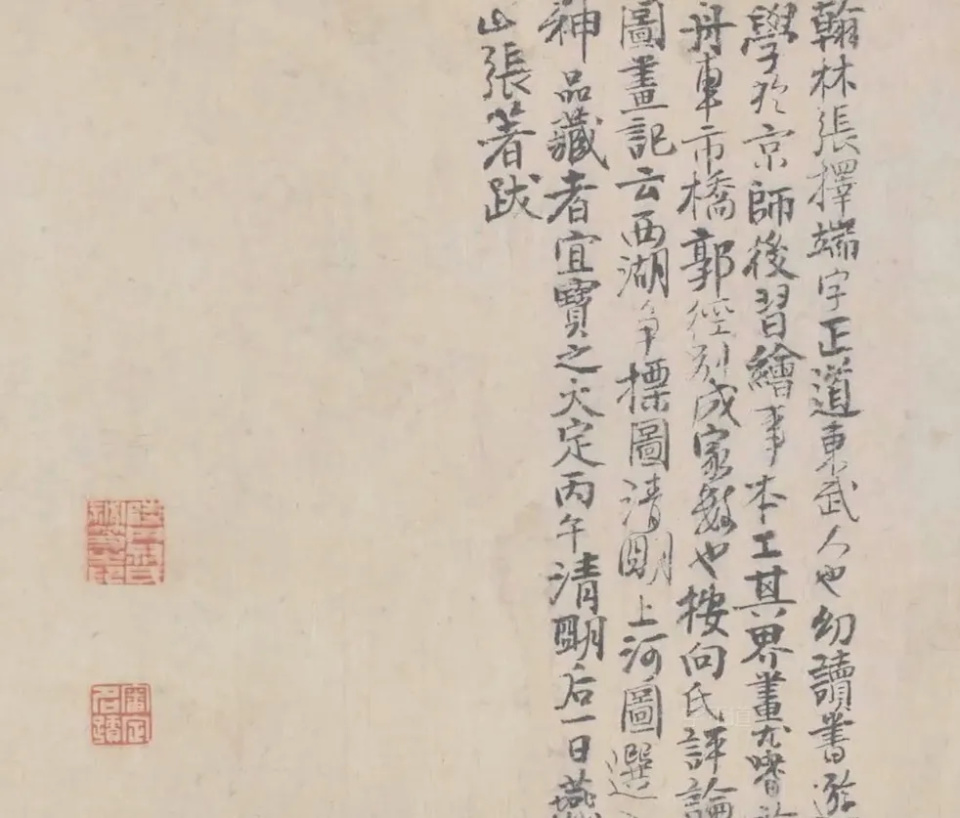 翰林張擇端字正道東武人也幼讀書遊
學於京師後習繪事本工其界畫尤嗜於
舟車市橋郭徑別成家數也按向氏評論
圖畫記云西湖爭摽圖清明上河圖選
神品藏者宜寶之大定丙午清明后一日燕
山張著跋